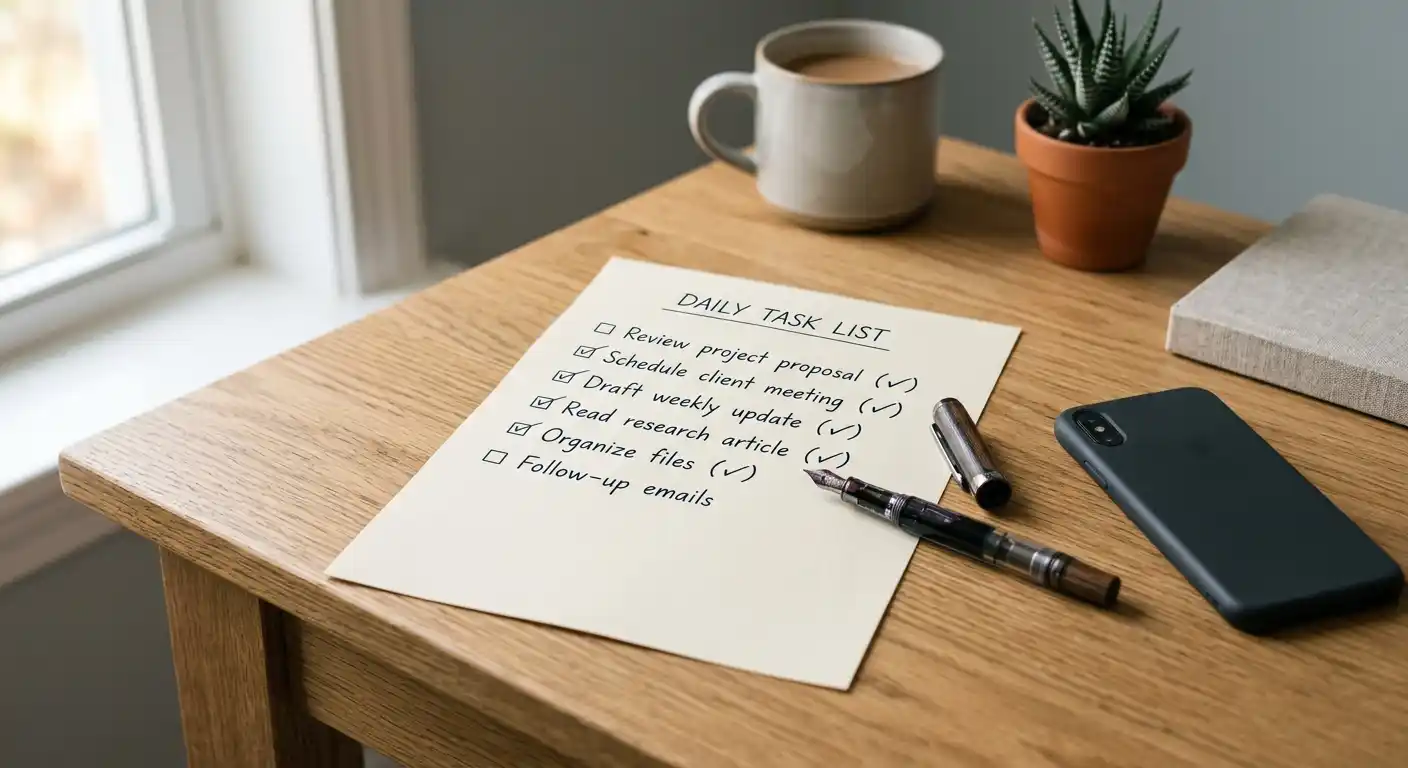 DAILY TASK LIST
☐ Review project proposal (✓)
☑ Schedule client meeting (✓)
☑ Draft weekly update (✓)
☑ Read research article (✓)
☑ Organize files (✓)
☐ Follow-up emails